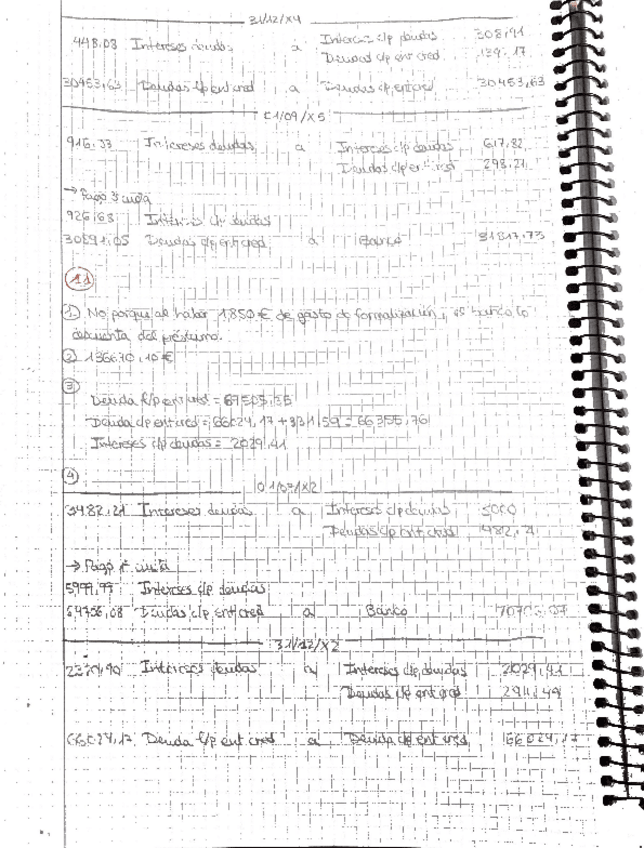 31/12/X4
448,03 Intereses deudas a Intereses c/p deudas 308,91
Deudas c/p ent cred 139,17
30453,63 Deudas l/p ent cred a Deudas c/p ent cred 30453,63
01/09/X5
916,33 Intereses deudas a Intereses c/p deudas 617,82
Deudas c/p ent cred 298,21
→ Pago 3 cuota
926,68 Intereses c/p deudas
30891,05 Deudas c/p ent cred a Banco 31817,73
11
① No, porque al haber 1.850 € de gasto de formalización, el banco lo
descuenta del préstamo.
② 136670,10 €
③
Deuda l/p ent cred = 67505,35
Deuda c/p ent cred = 66024,17 + 331,59 = 66355,76
Intereses c/p deudas = 2029,41
④
X2
3482,21 Intereses deudas a Intereses c/p deudas
Deudas c/p ent cred 482,21
→ Pago 1ª cuota
Intereses c/p deudas
Deudas c/p ent cred a Banco
31/12/X2
Intereses deudas a Intereses c/p deudas 2029,41
Deudas c/p ent cred
66024,17 Deuda l/p ent cred a Deuda c/p ent cred 66024,17